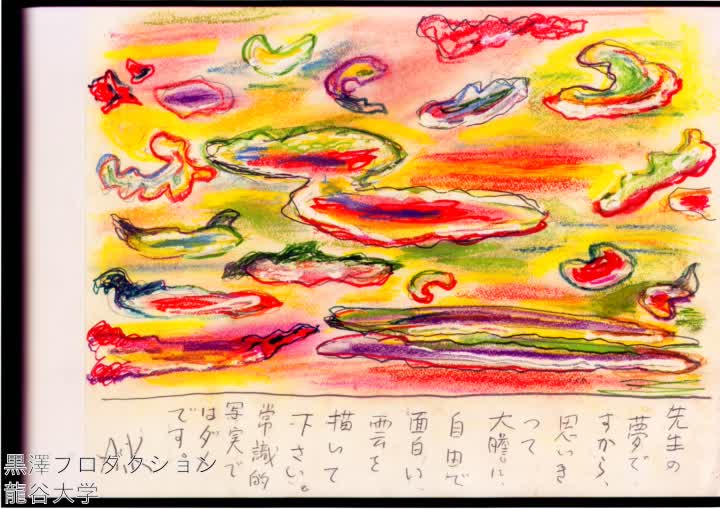 先生の
夢で
すから、
思いき
って
大膽に、
自由で
面白い
雲を
描いて
下さい。
常識的
写実で
はダメ
です。
A.K
黒澤プロダクション
龍谷大学